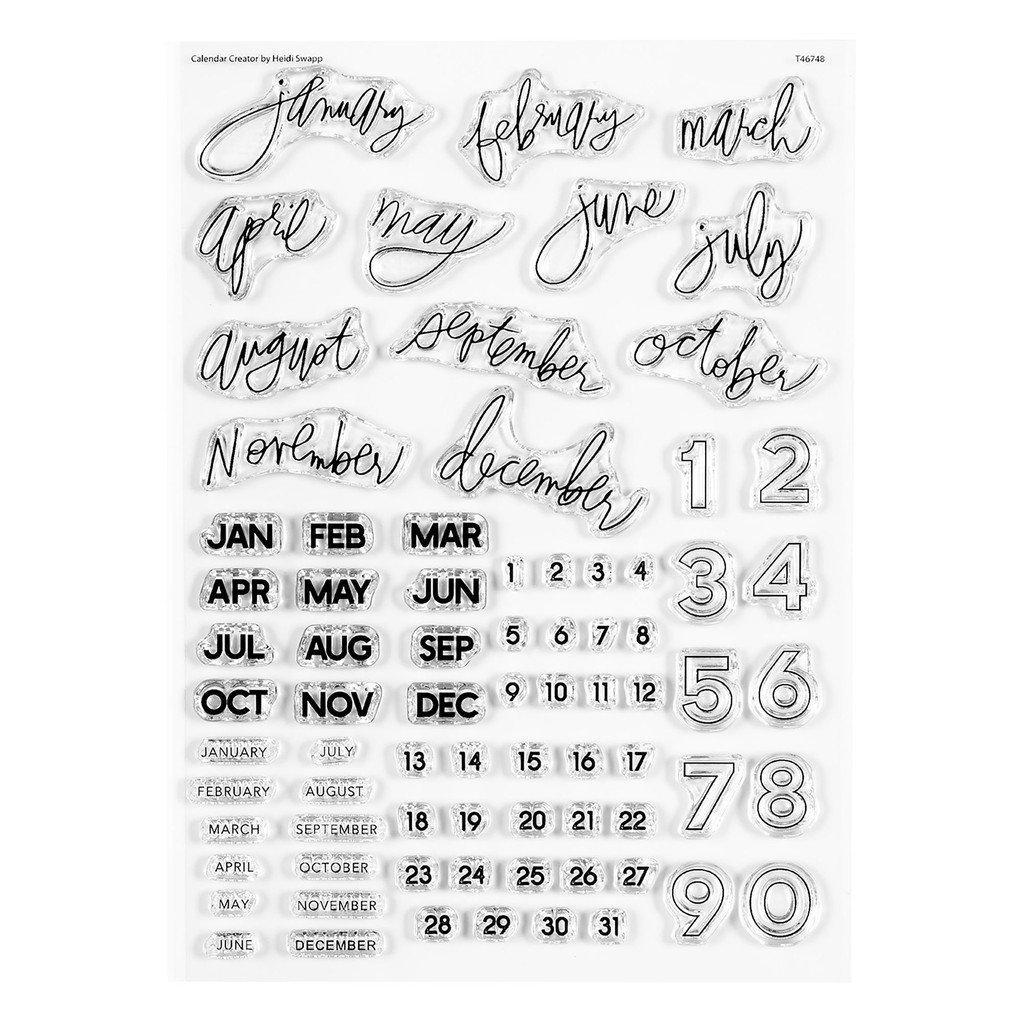 Calendar Creator by Heidi Swapp T46748
january february march
april may june july
august september october
November december
1 2
JAN FEB MAR
APR MAY JUN
JUL AUG SEP
OCT NOV DEC
1 2 3 4
5 6 7 8
9 10 11 12
3 4
5 6
JANUARY JULY
FEBRUARY AUGUST
MARCH SEPTEMBER
APRIL OCTOBER
MAY NOVEMBER
JUNE DECEMBER
13 14 15 16 17
18 19 20 21 22
23 24 25 26 27
28 29 30 31
7 8
9 0